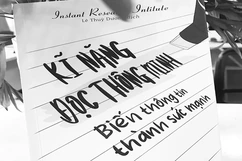 Instant Research Intitute
Lê Thuỳ Dương dịch
KĨ NĂNG
ĐỌC THÔNG MINH
Biến thông tin
thành sức mạnh